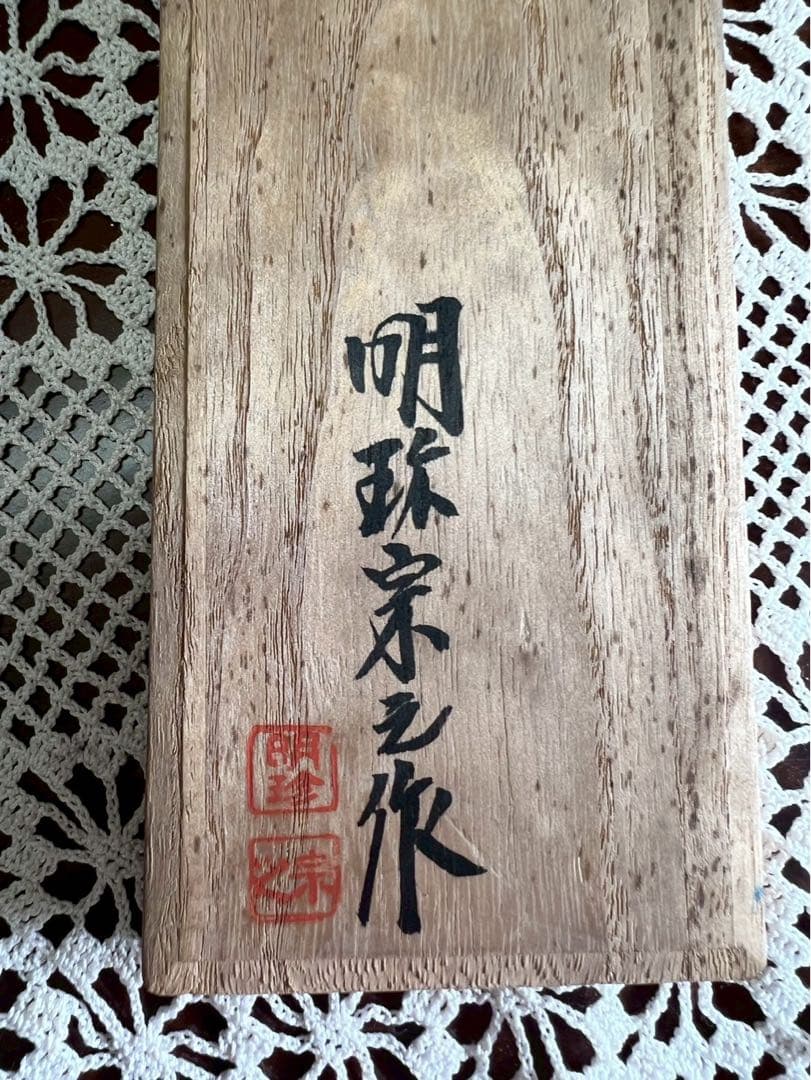 明珍宗之作
明珍
宗之